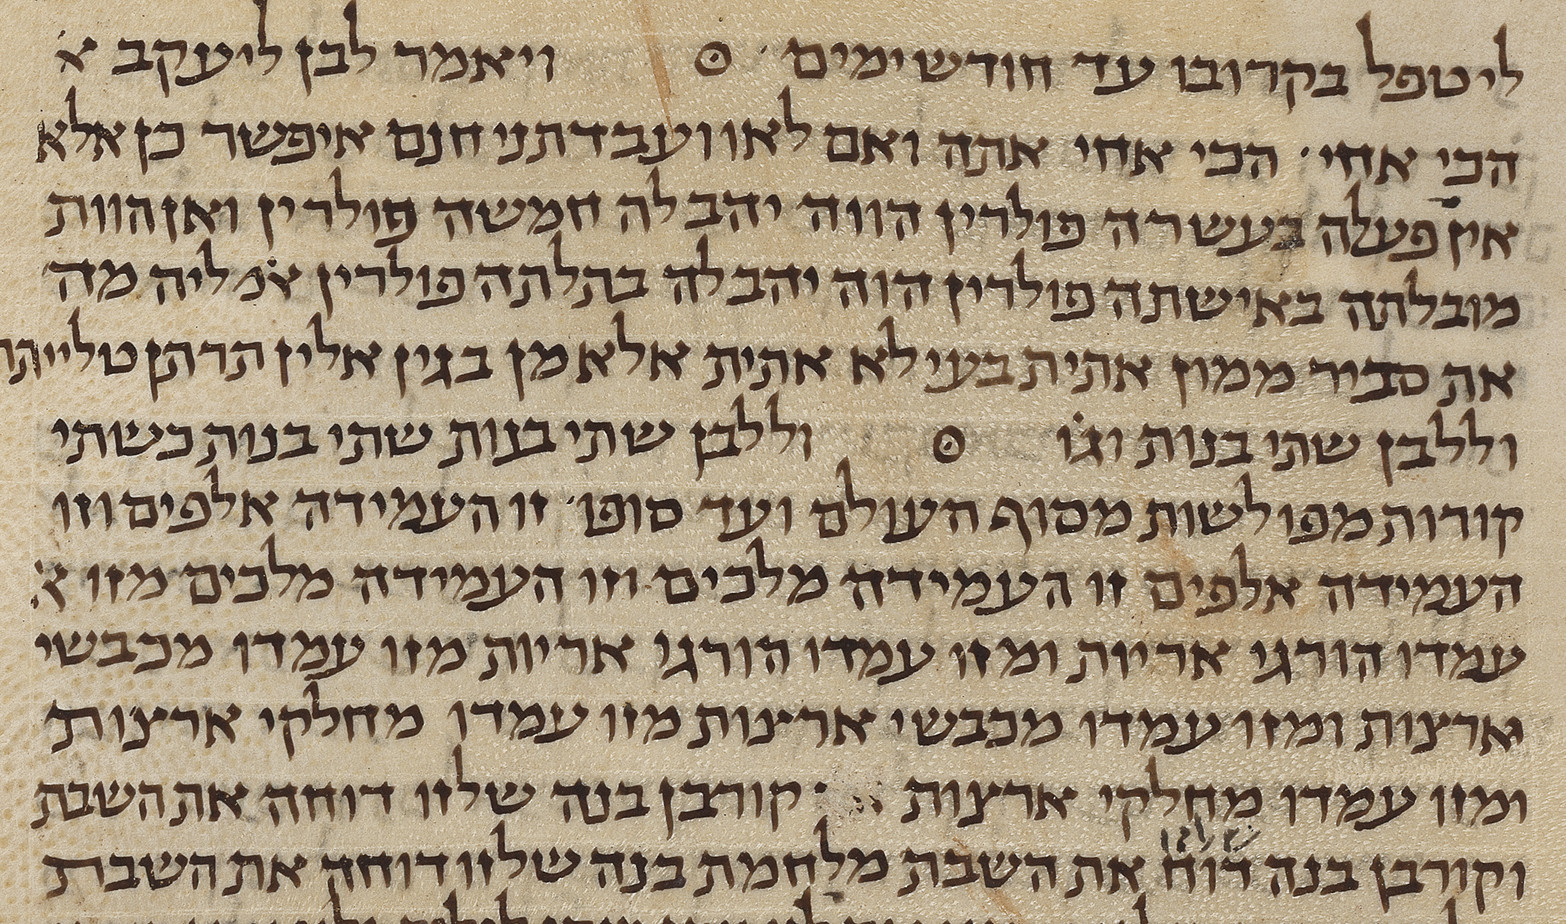 ליטפל בקרובו עד חודש ימים׳ ויאמר לבן ליעקב א׳
הכי אחי׳ הכי אחי אתה ואם לאו ועבדתני חנם איפשר כן אלא
אין פעלה בעשרה פולרין הווה יהב לה חמשה פולרין ואין הוות
מובלתה באישתה פולרין הוה יהב לה בתלתה פולרין א׳מ ליה מה
את סבור ממון אתית בעי לא אתית אלא מן בגין אלין תרתן טלייתה
וללבן שתי בנות וגו׳ וללבן שתי בנות שתי בנות כשתי
קורות מפולשות מסוף העולם ועד סופו׳ זו העמידה אלפים וזו
העמידה אלפים זו העמידה מלכים וזו העמידה מלכים מזו א׳
עמדו הורגי אריות ומזו עמדו הורגי אריות מזו עמדו מכבשי
ארצות ומזו עמדו מכבשי ארצות מזו עמדו מחלקי ארצות
ומזו עמדו מחלקי ארצות׳ קורבן בנה שלזו דוחה את השבת
וקורבן בנה שלזו דוח את השבת מלחמת בנה שלזו דוחה את השבת